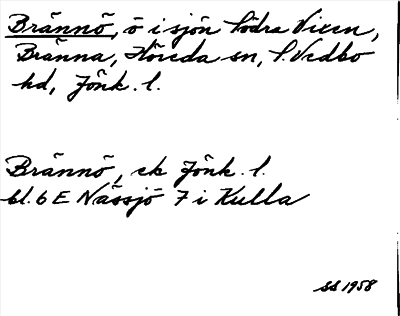 Brännö, ö i sjön Södra Vixen,
Bränna, Höreda sn, S. Vedbo
hd, Jönk. l.
Brännö, ek Jönk. l.
bl. 6 E Nässjö 7 i Kulla
SS 1958